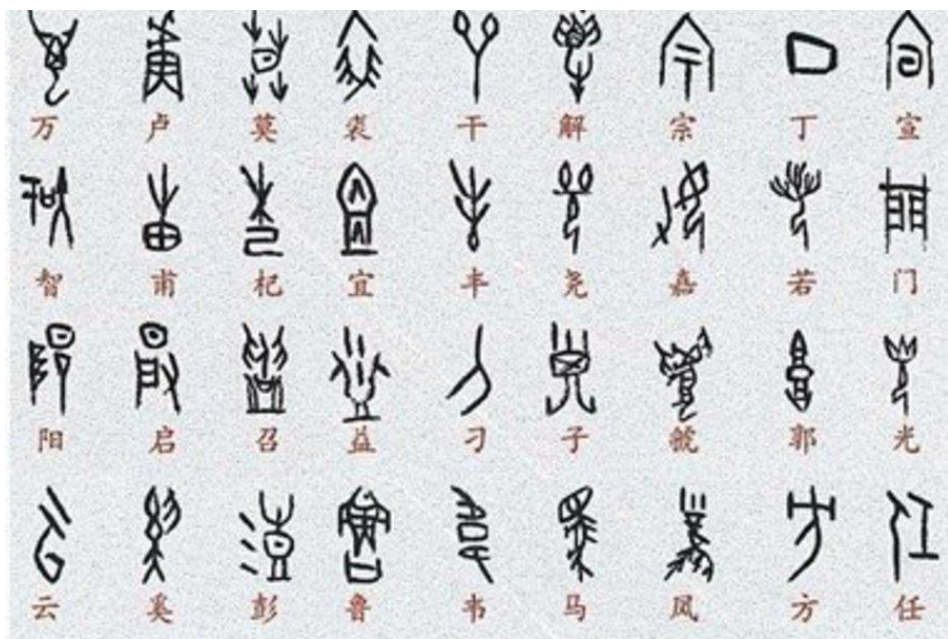 万 卢 莫 裘 干 解 宗 丁 宣
智 甫 杞 宜 丰 尧 嘉 若 门
阳 启 召 益 刁 子 虢 郭 光
云 奚 彭 鲁 韦 马 凤 方 任